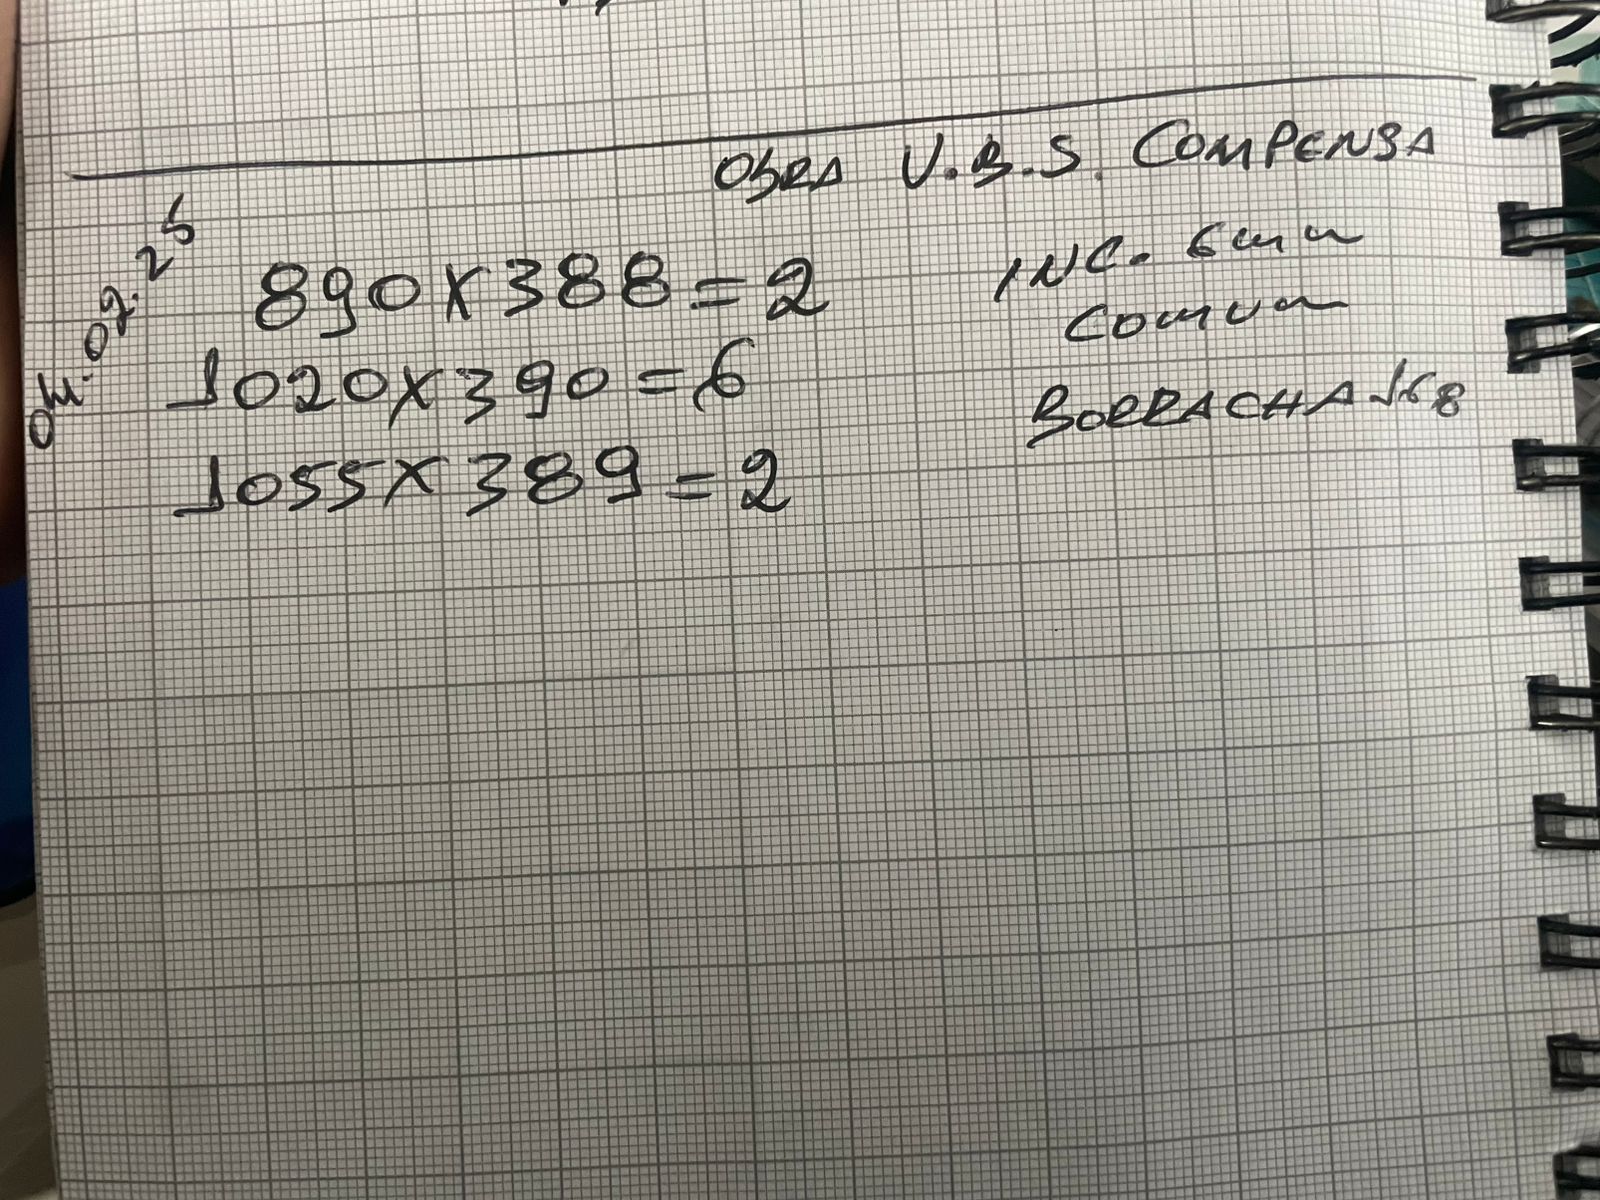 OBRA U.B.S. COMPENSA
04.07.25
890X388=2
1020X390=6
1055X389=2
INC. 6mm
comum
BORRACHA 168